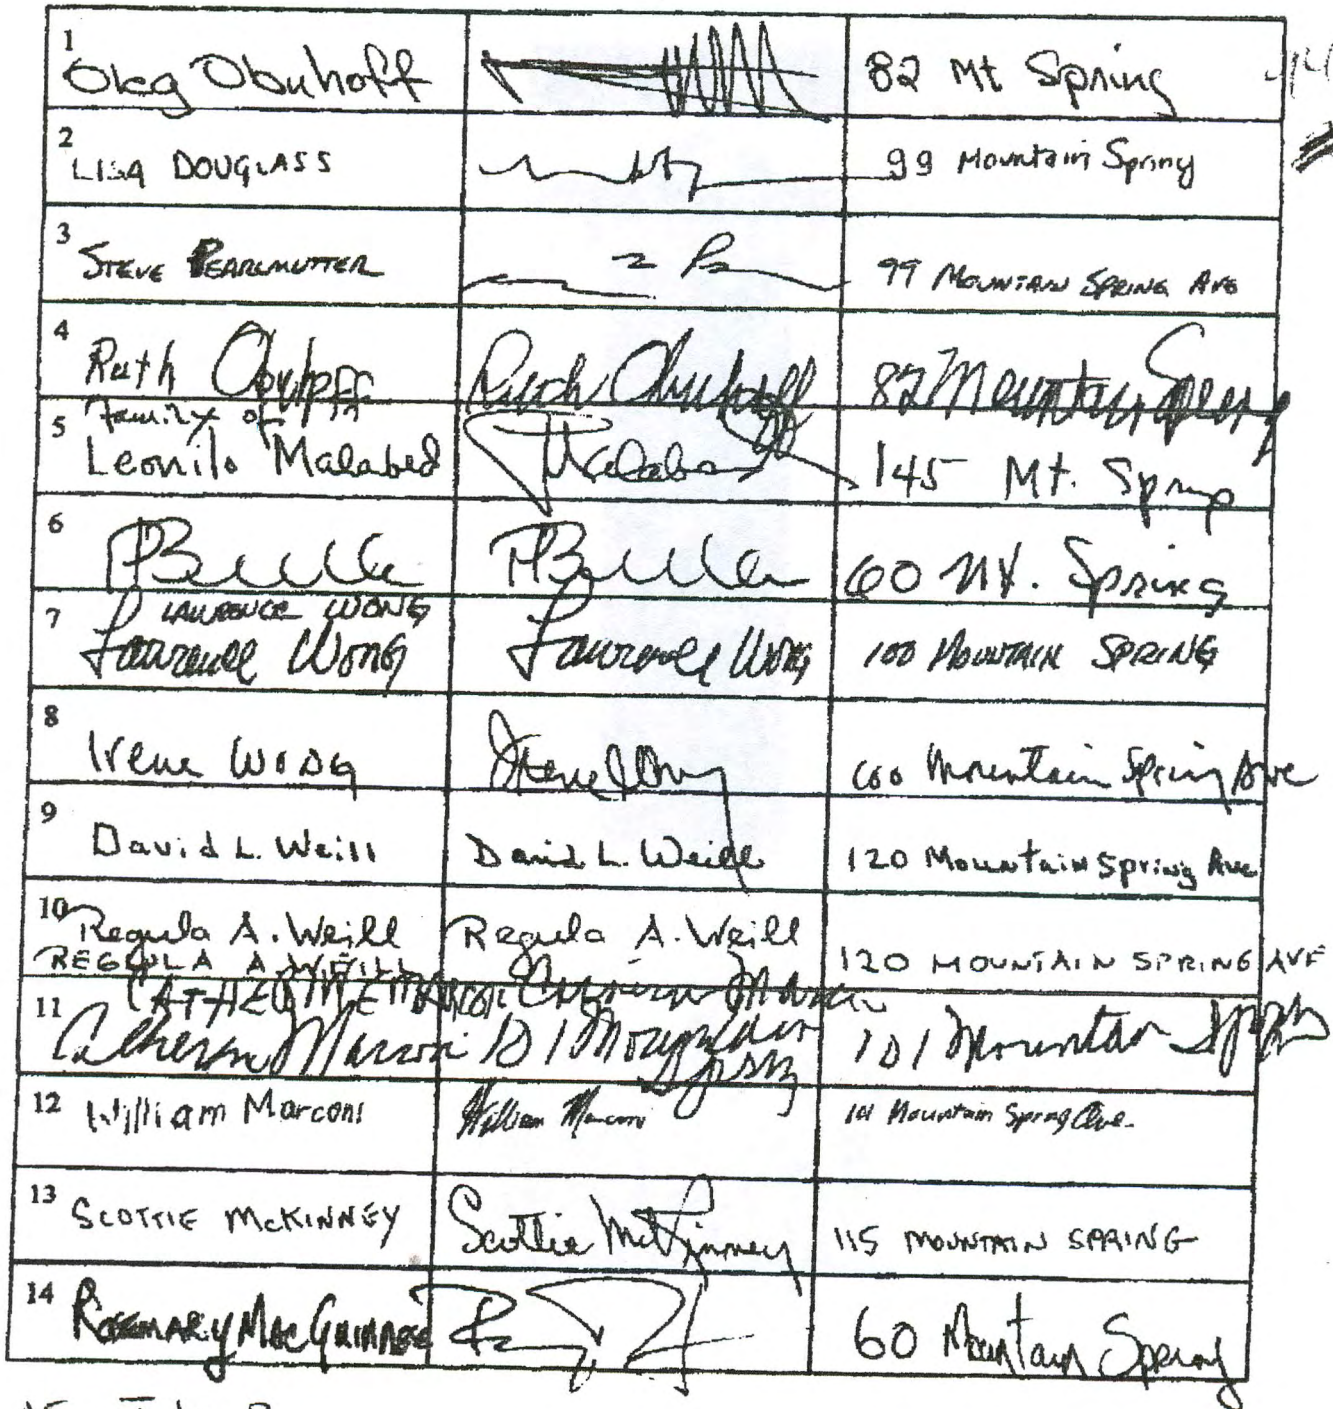 1
Oleg Obuhoff 82 Mt Spring
2
LISA DOUGLASS 99 Mountain Spring
3
STEVE PEARLMUTTER 99 MOUNTAIN SPRING AVE
4
Ruth Obuhoff Ruth Obuhoff 82 Mountain Spring
5 family of
Leonilo Malabed Malabed 145 Mt. Spring
6
60 Mt. Spring
7 LAWRENCE WONG
Lawrence Wong Lawrence Wong 100 MOUNTAIN SPRING
8
Irene Wong Irene Wong 100 Mountain Spring Ave
9
David L. Weill David L. Weill 120 Mountain Spring Ave
10
Regula A. Weill Regula A. Weill
REGULA A. WEILL 120 MOUNTAIN SPRING AVE
CATHERINE MARCONI Catherine Marconi
11
Catherine Marconi 101 Mountain Spring 101 Mountain Spring
12 William Marconi William Marconi 101 Mountain Spring Ave.
13
SCOTTIE MCKINNEY Scottie McKinney 115 MOUNTAIN SPRING
14
Rosemary MacGuinness 60 Mountain Spring